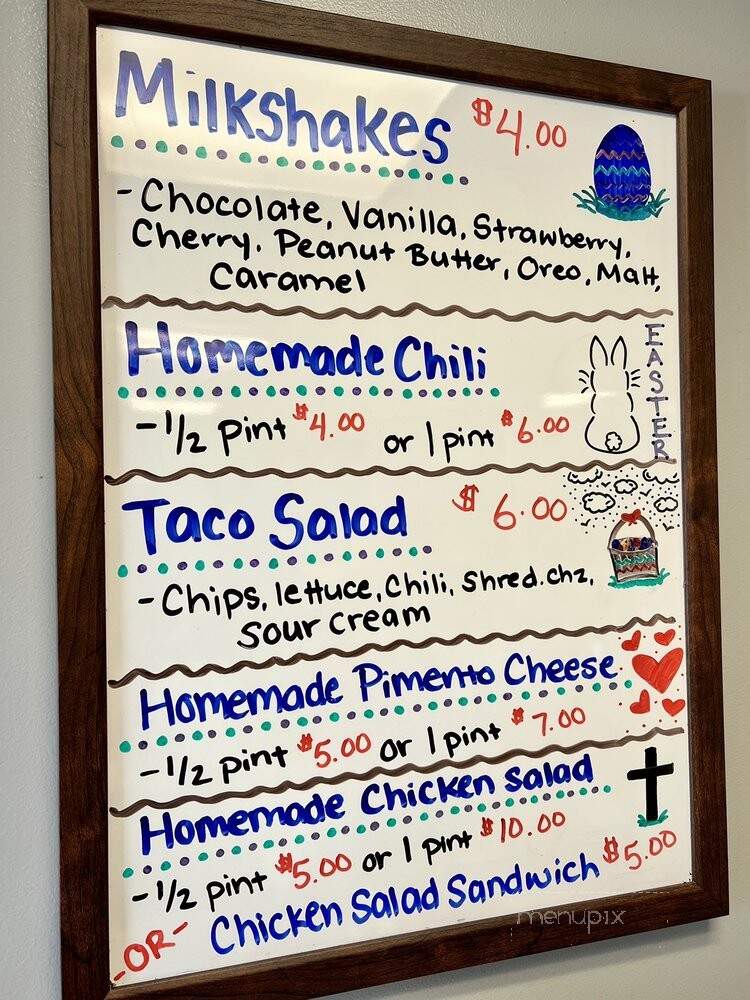 Milkshakes $4.00
-Chocolate, Vanilla, Strawberry,
Cherry. Peanut Butter, Oreo, Malt,
Caramel
Homemade Chili
-1/2 pint $4.00 or 1 pint $6.00
EASTER
Taco Salad $6.00
-Chips, lettuce, Chili, Shred. chz,
Sour Cream
Homemade Pimento Cheese
-1/2 pint $5.00 or 1 pint $7.00
Homemade Chicken salad
-1/2 pint $5.00 or 1 pint $10.00
-OR- Chicken Salad Sandwich $5.00
menupix